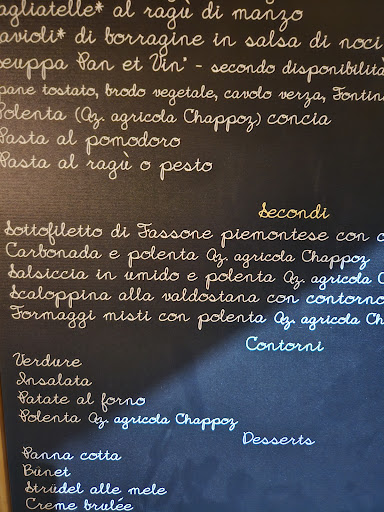 agliatelle* al ragù di manzo
avioli* di borragine in salsa di noci
euppa Pan et Vin" - secondo disponibilità
pane tostato, brodo vegetale, cavolo verza, Fontin
Polenta (Az. agricola Chappoz) concia
Pasta al pomodoro
Pasta al ragù o pesto
Secondi
Sottofiletto di Fassone piemontese con c
Carbonada e polenta Az. agricola Chappoz
Salsiccia in umido e polenta Az. agricola C
Scaloppina alla valdostana con contorno
Formaggi misti con polenta Az. agricola Ch
Contorni
Verdure
Insalata
Patate al forno
Polenta Az. agricola Chappoz
Desserts
Panna cotta
Bünet
Strüdel alle mele
Creme brulée